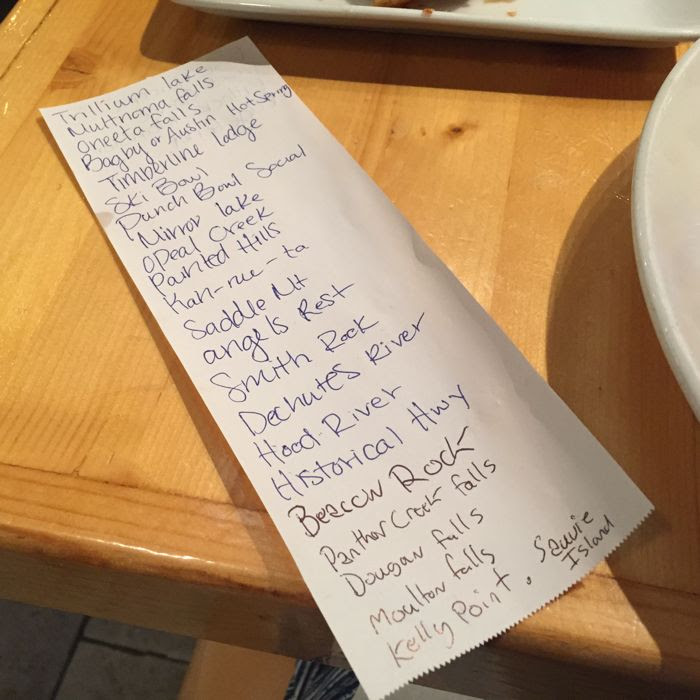 Trillium lake
Multnoma falls
Oneeta falls
Bagby or Austin HotSpring
Timberline lodge
Ski Bowl
Punch Bowl Social
Mirror lake
OPeal Creek
Painted Hills
Kah-nee-ta
Saddle Mt
angels Rest
Smith Rock
Dechutes River
Hood River
Historical Hwy
Beacon Rock
Panther Creek falls
Dougan falls
Moulton falls
Kelly Point, Sauvie
Island